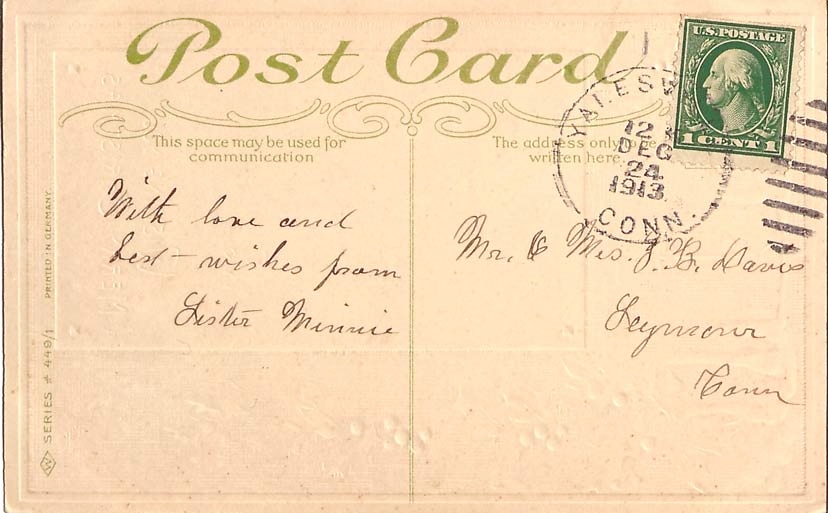 Post Card
U.S. POSTAGE
1 CENT 1
YALES
12
DEC
24
1913
CONN.
This space may be used for
communication
The address only to be
written here.
With love and
best-wishes from
Sister Minnie
Mr. & Mrs. J. B. Davis
Seymour
Conn
PRINTED IN GERMANY.
SERIES # 449/1
W